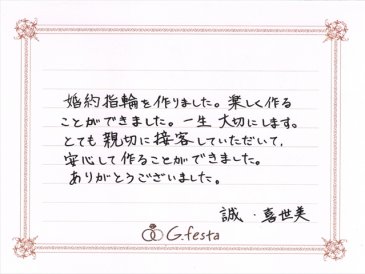 婚約指輪を作りました。楽しく作る
ことができました。一生 大切にします。
とても親切に接客していただいて、
安心して作ることができました。
ありがとうございました。
誠・喜世美
G.festa